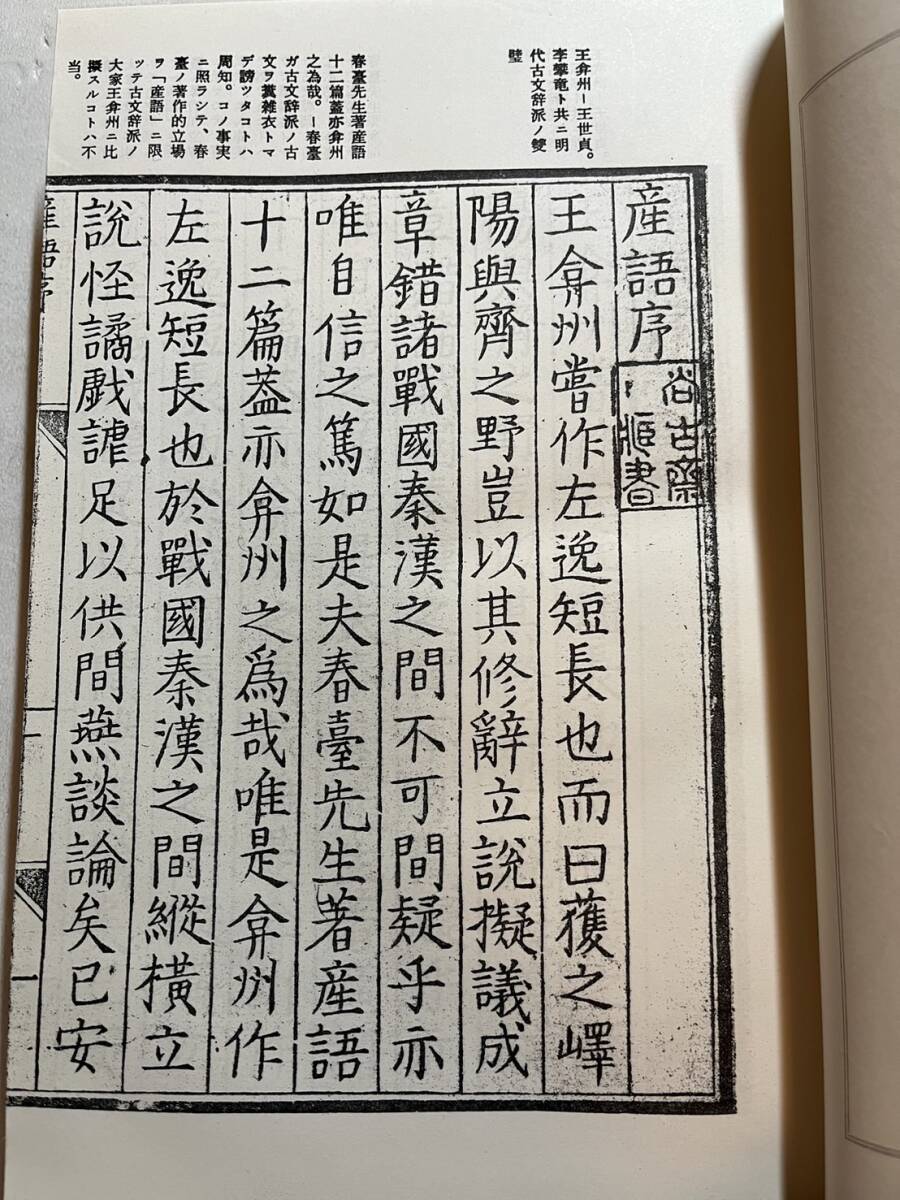 王弇州ー王世貞。
李攀竜ト共ニ明
代古文辞派ノ雙
璧
春臺先生著産語
十二篇蓋亦弇州
之為哉。ー春臺
ガ古文辞派ノ古
文ヲ糞雑衣トマ
デ謗ツタコトハ
周知。コノ事実
ニ照ラシテ、春
臺ノ著作的立場
ヲ「産語」ニ限
ッテ古文辞派ノ
大家王弇州ニ比
擬スルコトハ不
当。
産語序
王弇州嘗作左逸短長也而曰獲之嶧
陽與齊之野豈以其修辭立說擬議成
章錯諸戰國秦漢之間不可間疑乎亦
唯自信之篤如是夫春臺先生著産語
十二篇蓋亦弇州之爲哉唯是弇州作
左逸短長也於戰國秦漢之間縱橫立
說怪譎戲謔足以供間燕談論矣已安
産語序